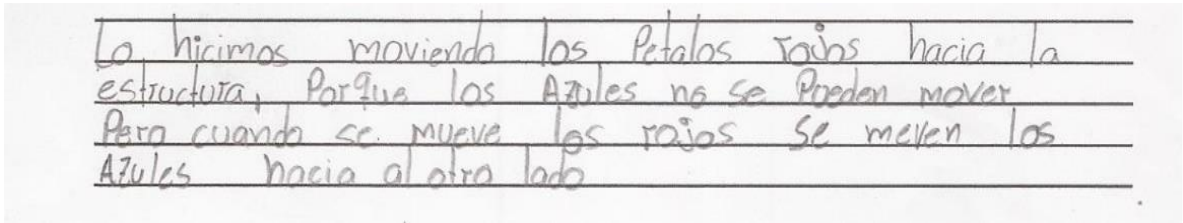 Lo hicimos moviendo los Petalos rojos hacia la
estructura, Porque los Azules no se Pueden mover
Pero cuando se mueve los rojos se meven los
Azules hacia al otro lado